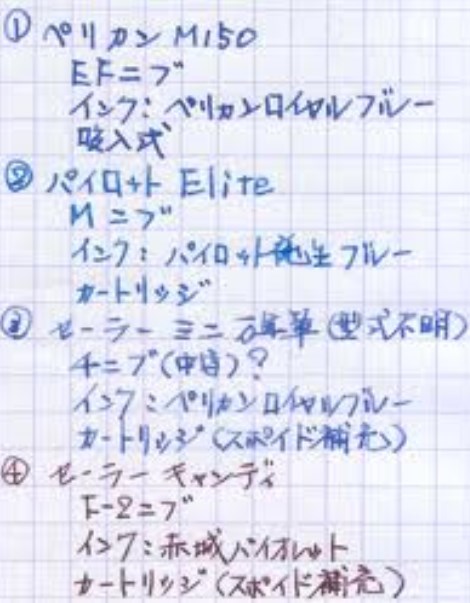 ① ペリカン M150
EFニブ
インク: ペリカンロイヤルブルー
吸入式
② パイロット Elite
Mニブ
インク: パイロット ブルー
カートリッジ
③ セーラー ミニ万年筆 (型式不明)
ニブ(中字)?
インク: ペリカンロイヤルブルー
カートリッジ(スポイド補充)
④ セーラー キャンディ
F-2ニブ
インク: 赤城バイオレット
カートリッジ(スポイド補充)